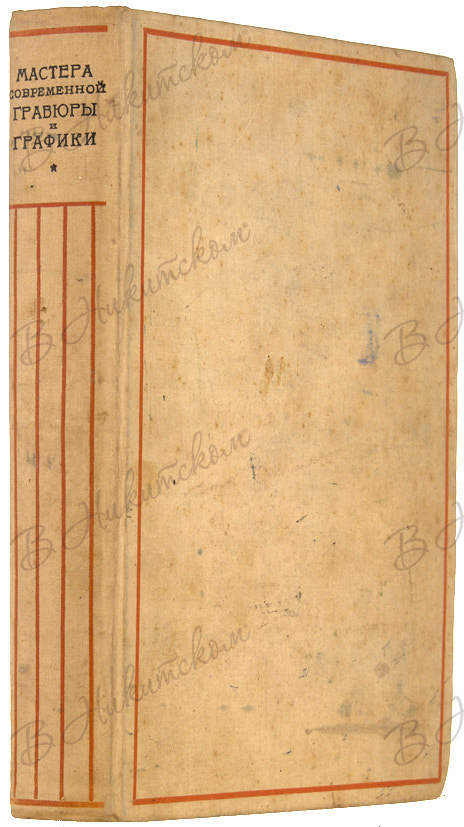 МАСТЕРА
СОВРЕМЕННОЙ
ГРАВЮРЫ
и
ГРАФИКИ
*
В Никитском
В Н
В Никитском
В Н
В Никитском
В Н
В Никитском
В Н